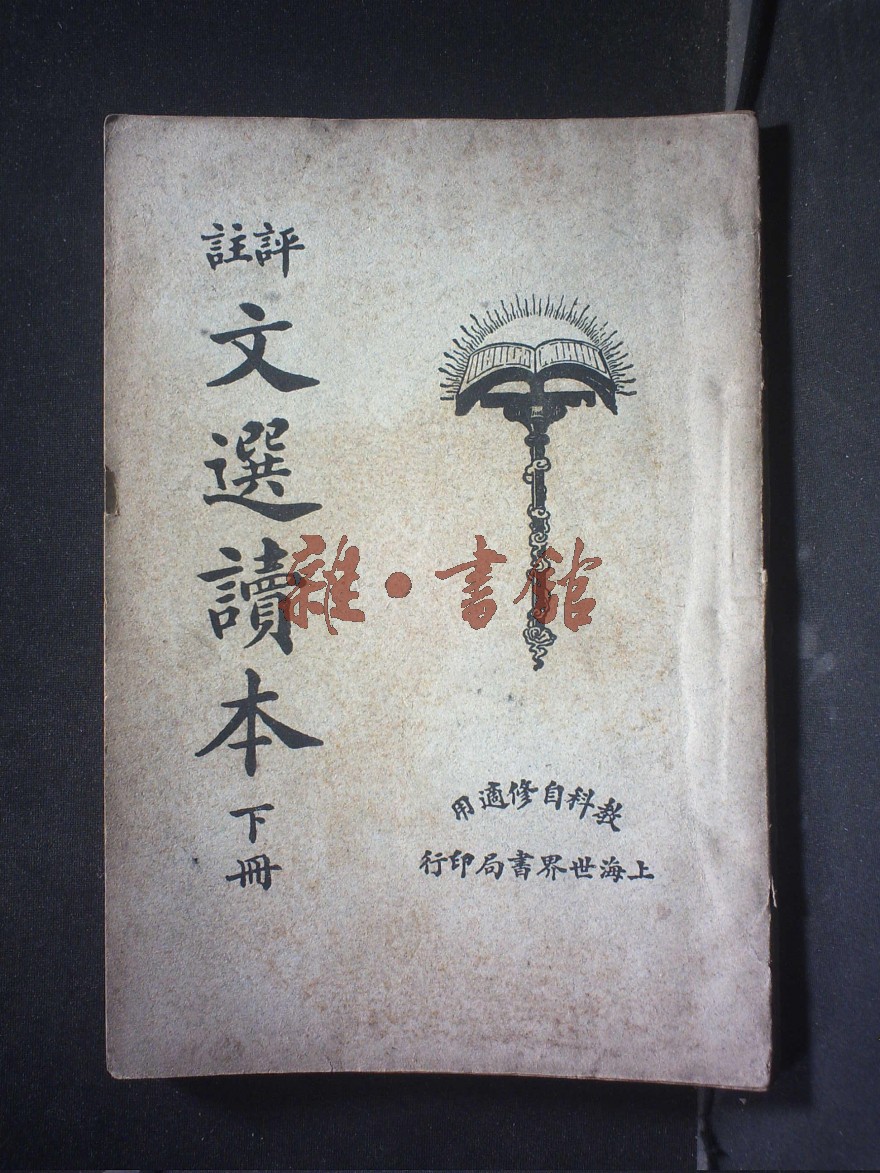 評註
文選讀本
下冊
教科自修適用
上海世界書局印行
雜·書館